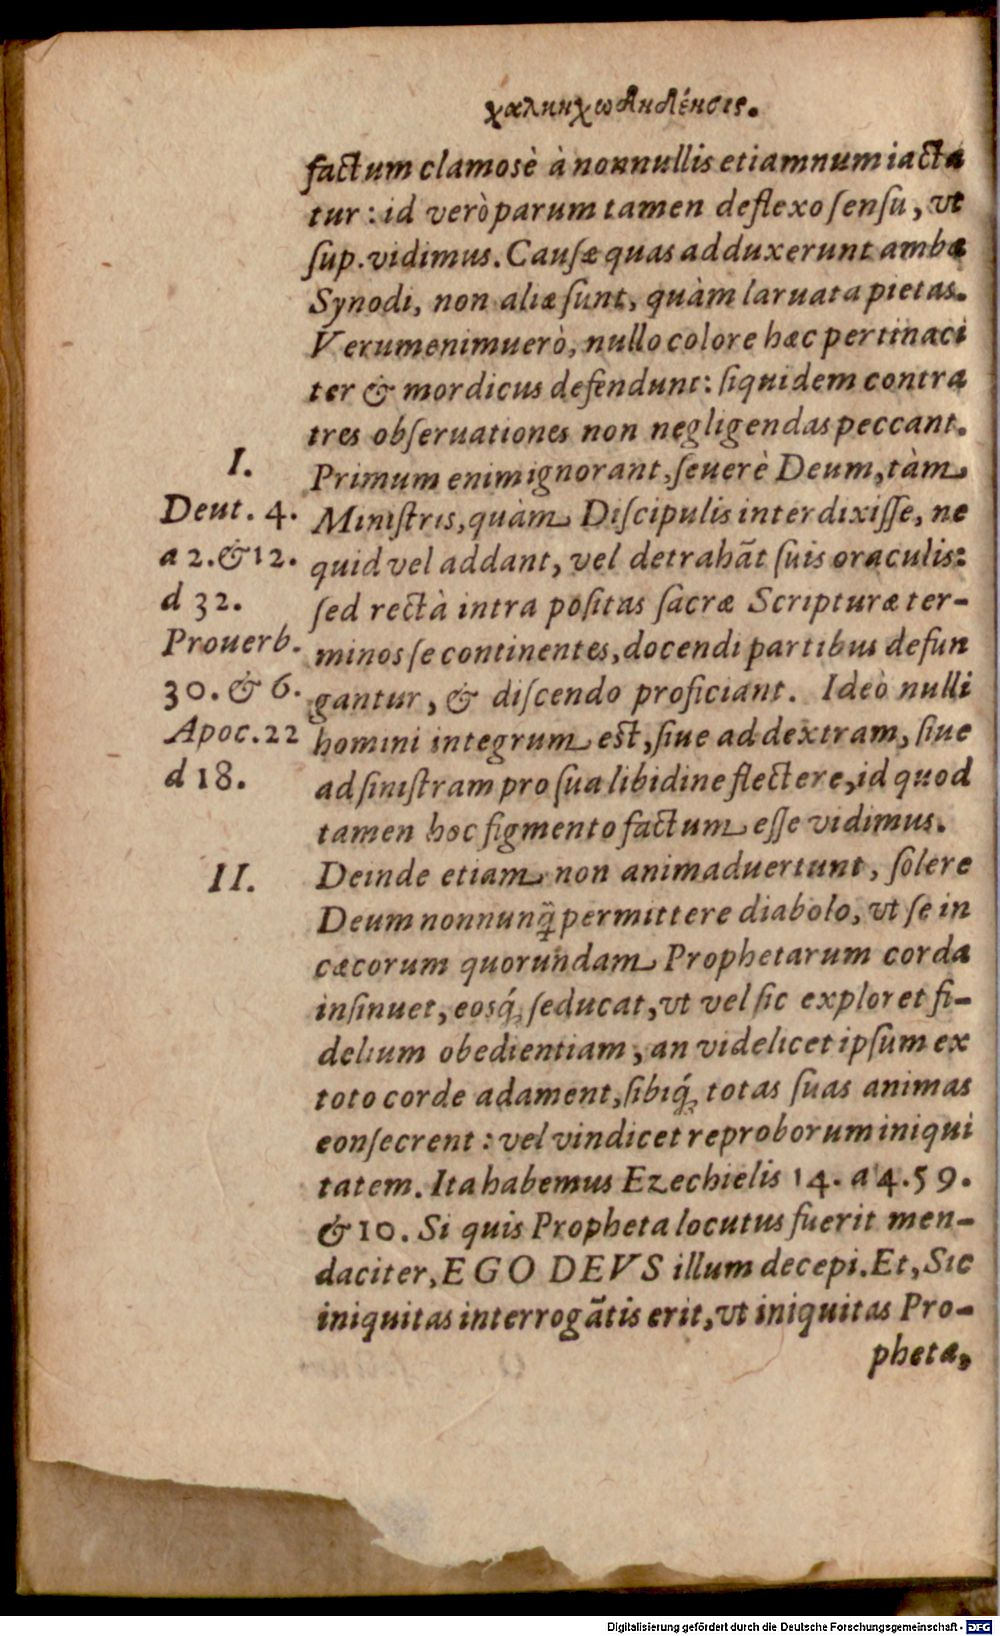 χαληηχωδηδένσις.
factum clamosè à nonnullis etiamnum iacta
tur: id verò parum tamen deflexo sensu, vt
sup. vidimus. Causæ quas adduxerunt ambæ
Synodi, non aliæ sunt, quàm laruata pietas.
Verumenimuerò, nullo colore hæc pertinaci
ter & mordicus defendunt: siquidem contra
tres obseruationes non negligendas peccant.
I.
Primum enim ignorant, seuerè Deum, tàm
Deut. 4.
Ministris, quàm Discipulis interdixisse, ne
a 2. & 12.
quid vel addant, vel detrahãt suis oraculis:
d 32.
sed rectà intra positas sacræ Scripturæ ter-
Prouerb.
minos se continentes, docendi partibus defun
30. & 6.
gantur, & discendo proficiant. Ideò nulli
Apoc. 22
homini integrum est, siue ad dextram, siue
d 18.
ad sinistram pro sua libidine flectere, id quod
tamen hoc figmento factum esse vidimus.
II.
Deinde etiam non animaduertunt, solere
Deum nonnunq̃ permittere diabolo, vt se in
cæcorum quorundam Prophetarum corda
insinuet, eosq́; seducat, vt vel sic exploret fi-
delium obedientiam, an videlicet ipsum ex
toto corde adament, sibiq́; totas suas animas
consecrent: vel vindicet reproborum iniqui
tatem. Ita habemus Ezechielis 14. a 4. 5 9.
& 10. Si quis Propheta locutus fuerit men-
daciter, EGO DEVS illum decepi. Et, Sic
iniquitas interrogãtis erit, vt iniquitas Pro-
phetæ,
Digitalisierung gefördert durch die Deutsche Forschungsgemeinschaft - DFG